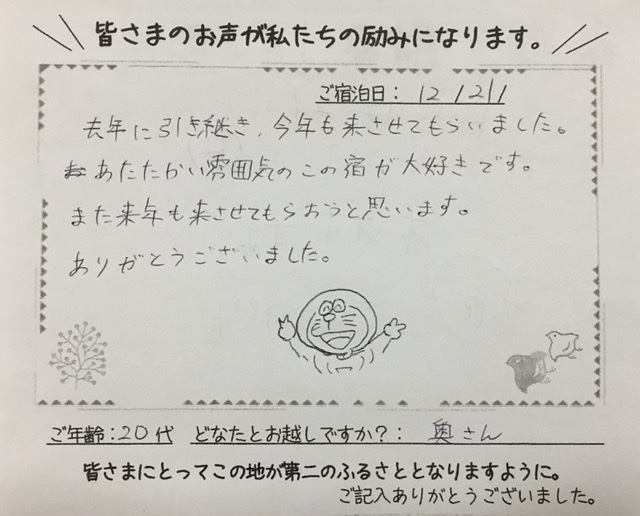 皆さまのお声が私たちの励みになります。
ご宿泊日：12/21
去年に引き継き、今年も来させてもらいました。
あたたかい雰囲気のこの宿が大好きです。
また来年も来させてもらおうと思います。
ありがとうございました。
ご年齢：20代 どなたとお越しですか？：奥さん
皆さまにとってこの地が第二のふるさととなりますように。
ご記入ありがとうございました。